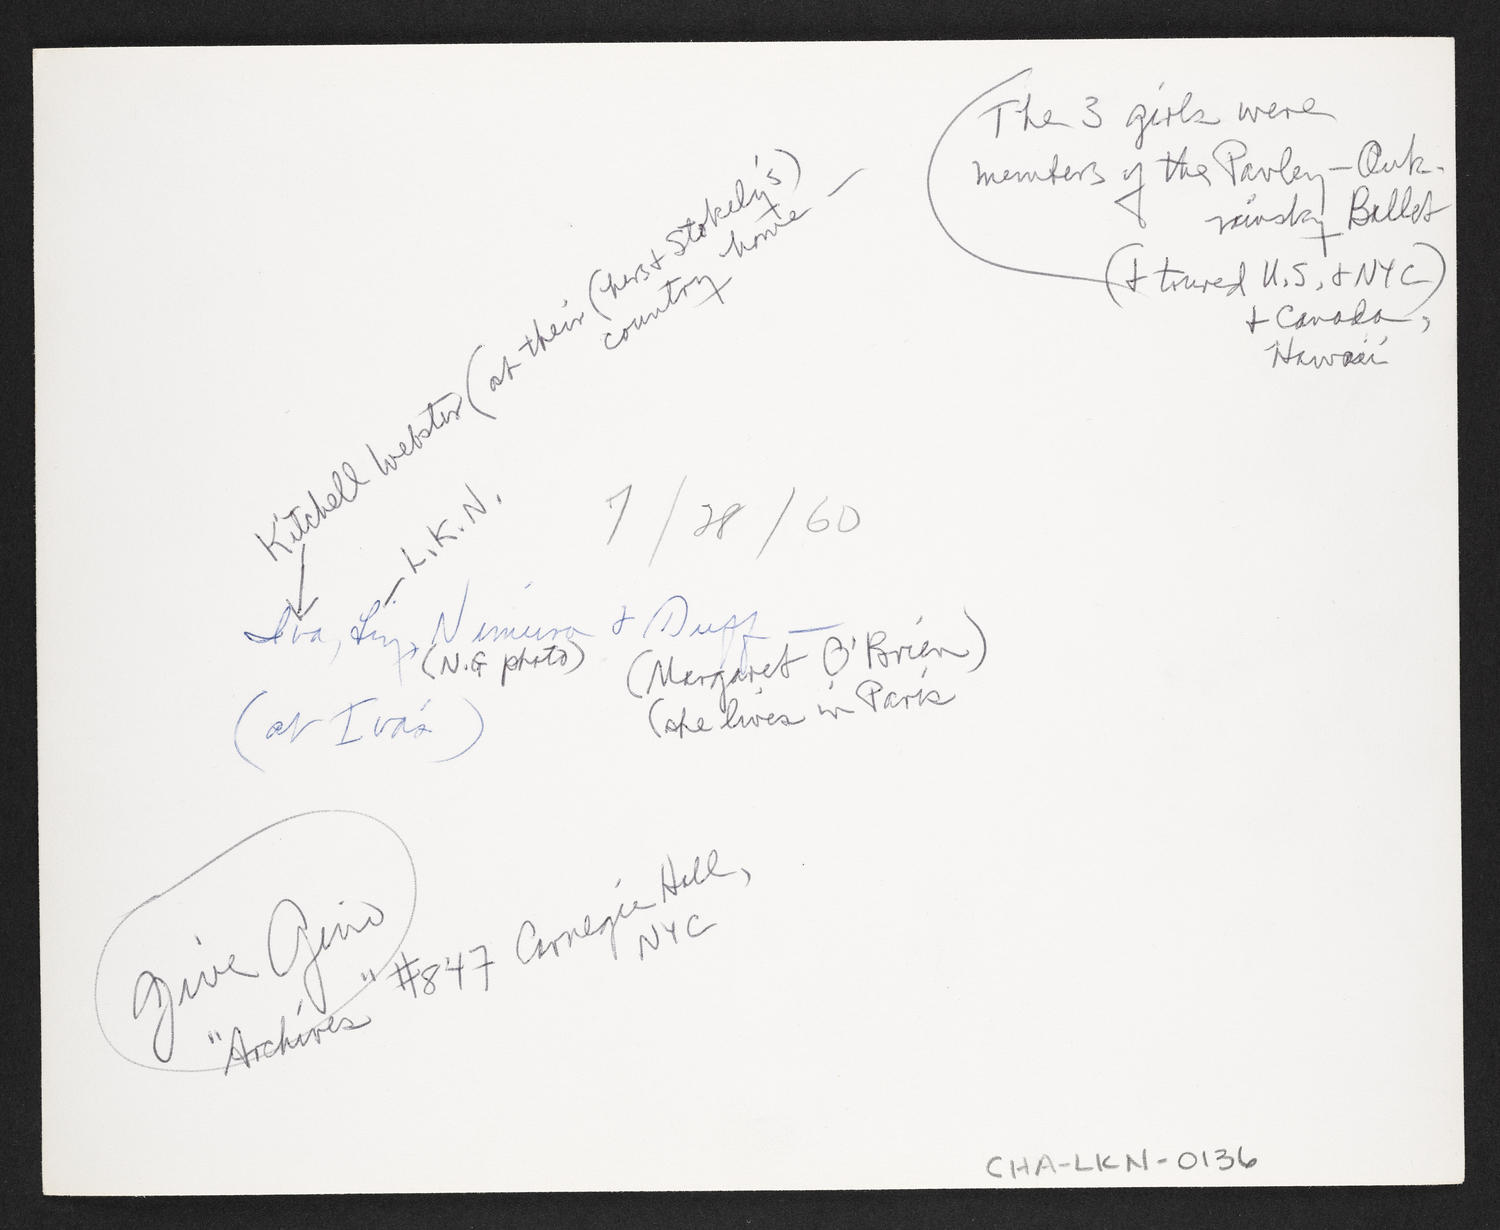 The 3 girls were
members of the Pavley-Ouk-
rainsky Ballet
(& toured U.S. & NYC)
& Canada,
Hawaii
Kitchell Webster (at their (hers & Stokely's)
country home —
L.K.N.
7/28/60
Iva, Liz, Nimura & Duff —
(N.G photo) (Margaret O'Brien)
(she lives in Paris
(at Iva's)
Give Gino
"Archives" #847 Carnegie Hall,
NYC
CHA-LKN-0136